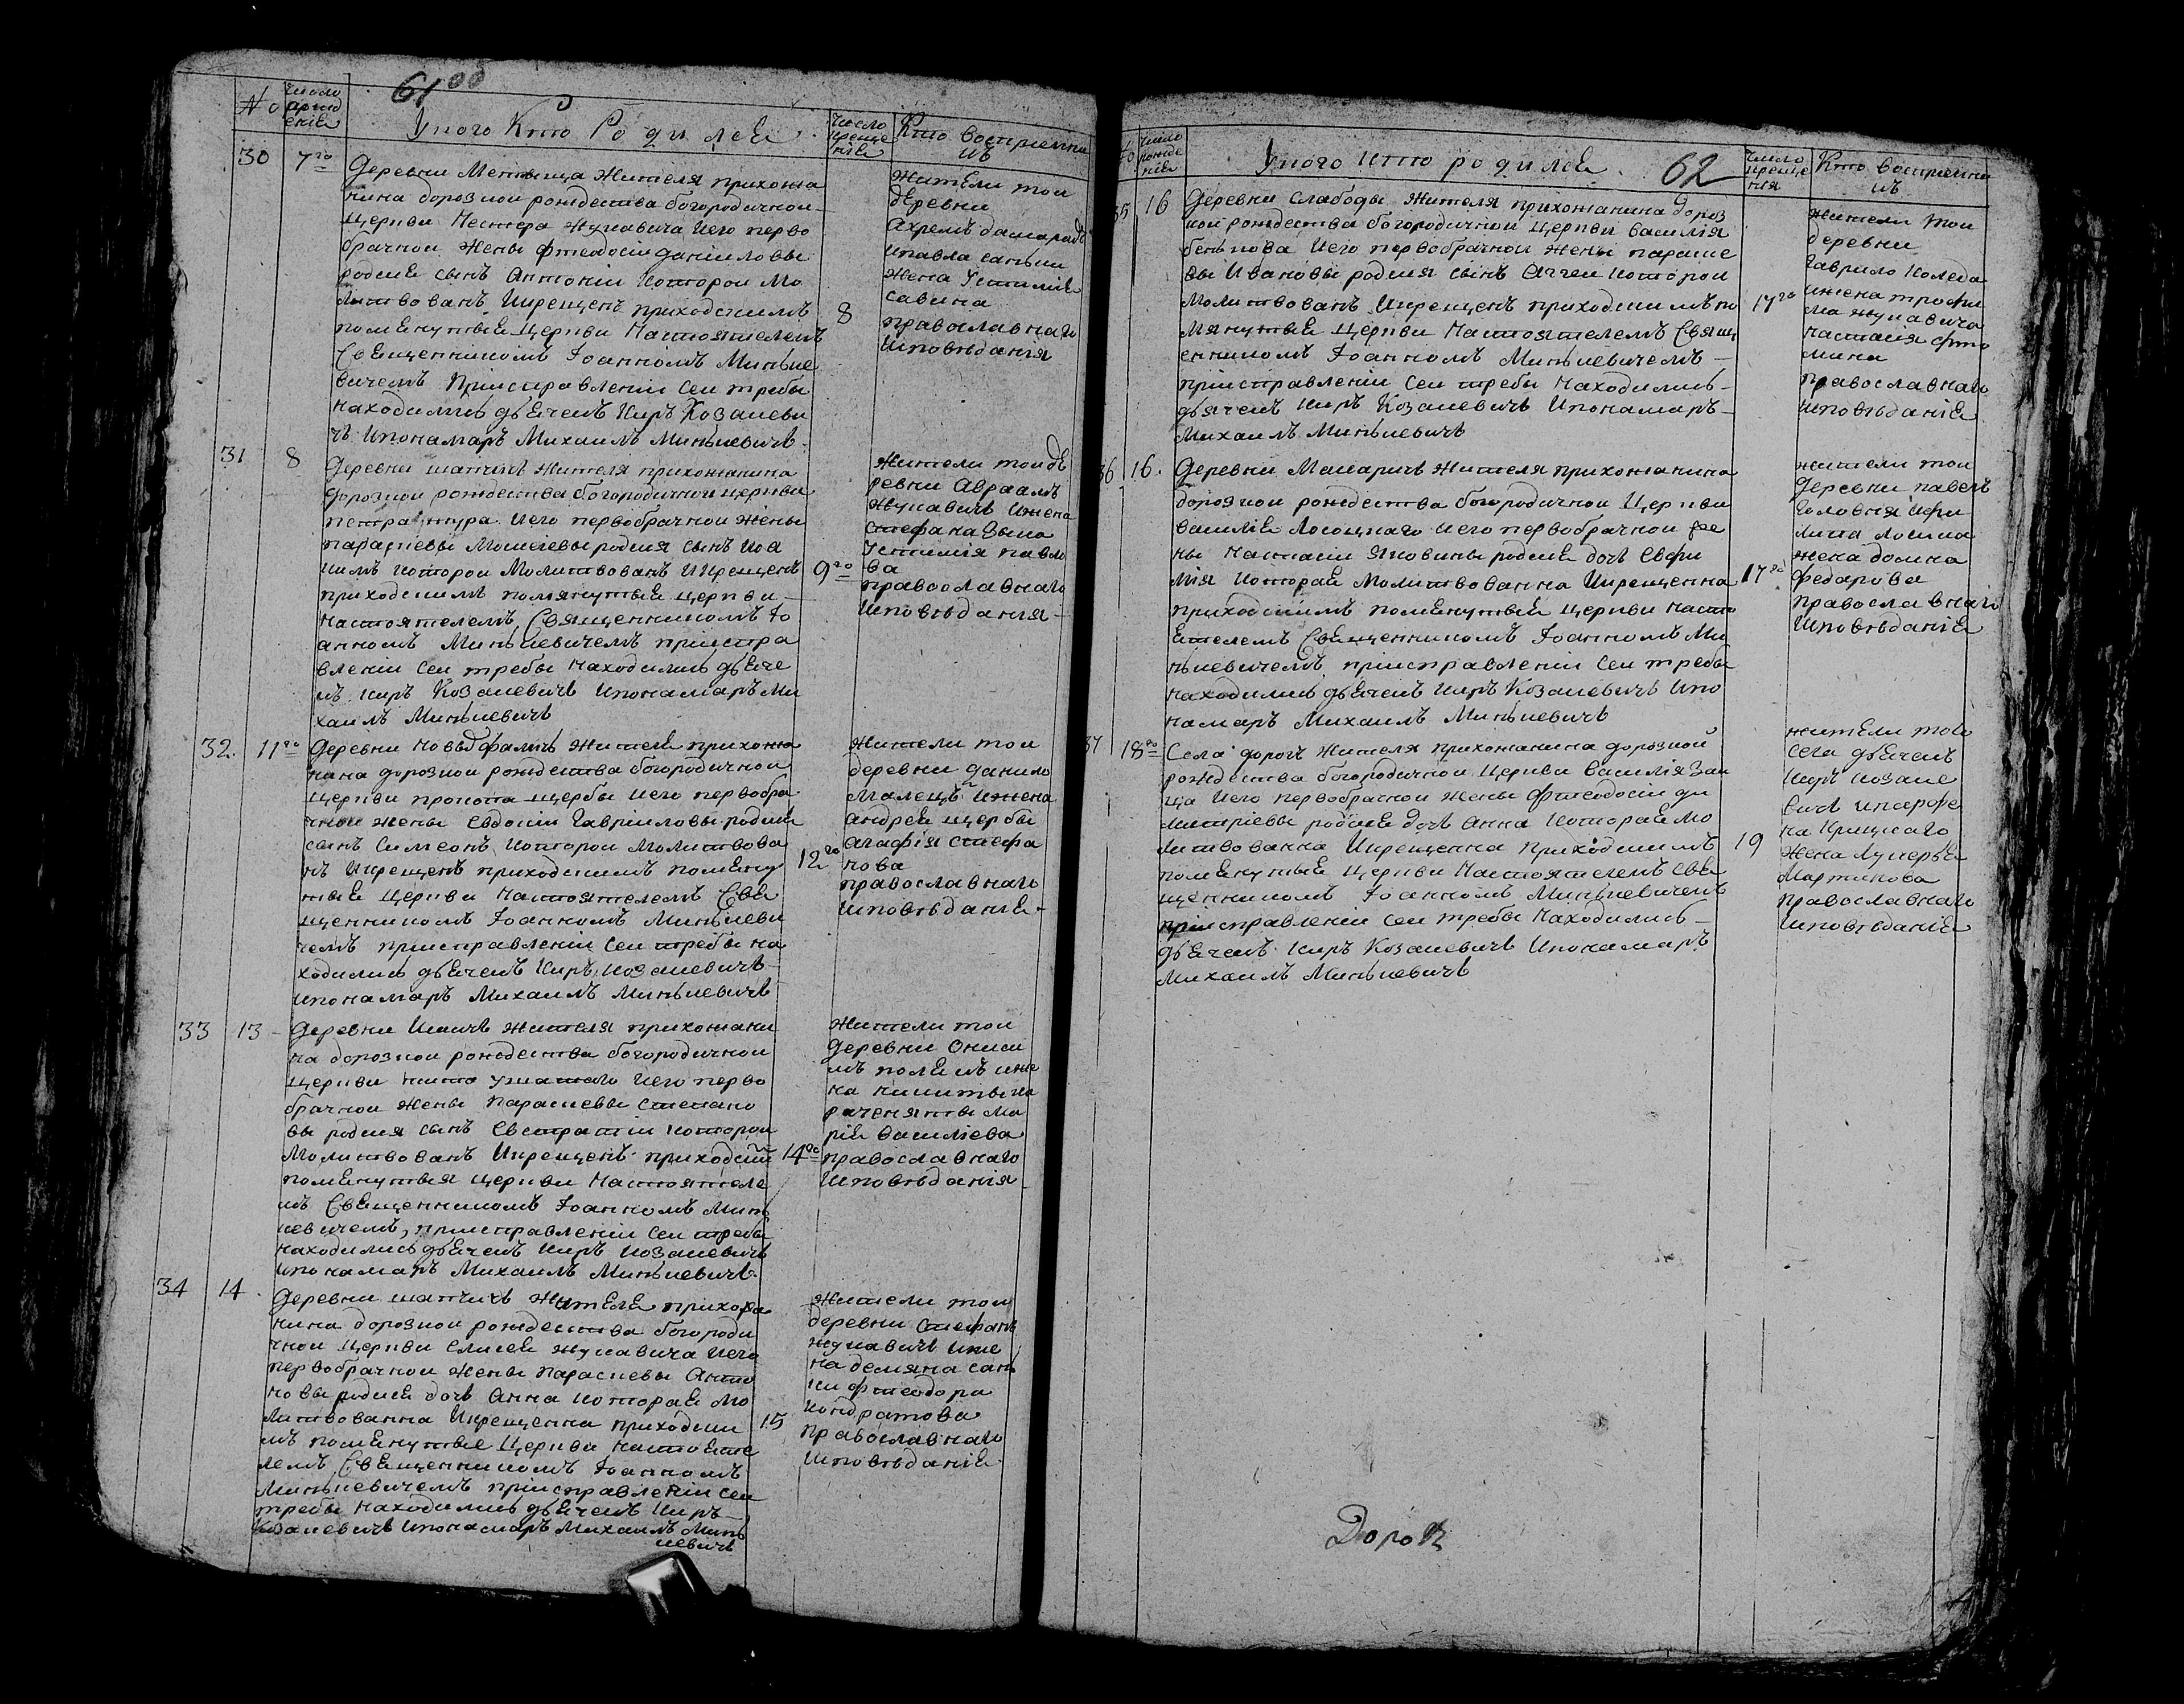 61
№
число
рожд
енія
У кого Кто Родился
Число
креще
нія
Кто Восприемни
къ
30
7го
Деревни Метявича Жителя прихожа
нина дорозкои рождества богородичнои
Церкви Нестера Жуковича Иего перво
брачнои Жены Фтеодосіи даніиловы
родися сынъ Антоніи которои Мо
литвованъ Икрещенъ приходскимъ
помѣнутыя Церкви Настоятелемъ
Священникомъ Іоанномъ Минкие
вичемъ Приисправленіи Сеи требы
находились дьячекъ Киръ Козакеви
чъ Ипонамаръ Михаилъ Минкиевичъ
8
Жители тои
деревни
Ахремъ
Ипавла
Жена Устимія
Савина
православнаго
Исповѣданія
31
8
Деревни шапчичъ Жителя прихожанина
дорозкои рождества богородичнои церкви
петра тура Иего первобрачнои Жены
параскевы Моисіевы родися сынъ Иоа
кимъ которои Молитвованъ ИКрещенъ
приходскимъ помянутыя церкви
настоятелемъ Священникомъ Іо
анномъ Минкиевичемъ приистра
вленіи Сеи требы находились дьяче
къ Киръ Козакевичъ Ипонамаръ Ми
хаилъ Минкиевичъ
9го
Жители тои де
ревни Авраамъ
Жукавичъ Ижена
Стефана Зыка
Устимія павло
ва
православнаго
Исповѣданія
32.
11го
Деревни Жителя прихожа
нина дорозкои рождества богородичнои
Церкви прокопа щербы Иего первобра
чнои Жены Евдокіи Гавриловы родися
сынъ Симеонъ которои Молитвова
нъ Икрещенъ приходскимъ помѣну
тыя Церкви Настоятелемъ Свя
щенникомъ Іоанномъ Минкиеви
чемъ приисправленіи Сеи требы на
ходились дьячекъ Киръ козакевичъ
Ипонамаръ Михаилъ Минкиевичъ
12го
Жители тои
деревни данило
Малецъ Ижена
андрея щербы
агафія стефа
нова
православнаго
Исповѣданія
33
13
Деревни Жителя прихожани
на дорозкои рождества богородичнои
Церкви Иего перво
брачнои Жены Параскевы Степано
вы родися сынъ Евстратіи которои
Молитвованъ Икрещенъ приходскій
помѣнутыя Церкви Настоятеле
мъ Священникомъ Іоанномъ Минь
кевичемъ, приисправленіи Сеи требы
находились дьячекъ Киръ козакевичъ
Ипонамаръ Михаилъ Минкиевичъ
14го
Жители тои
деревни Ониси
мъ Иже
на никиты
Ма
рія Василіева
православнаго
Исповѣданія
34
14
Деревни шапчичъ Жителя прихожа
нина дорозкои рождества богороди
чнои Церкви Елисея Жукавича Иего
первобрачнои Жены Параскевы Анто
новы родися дочь Анна которая Мо
литвованна Икрещенна приходски
мъ помѣнутые Церкви настояте
лемъ Священникомъ Іоанномъ
Минкиевичемъ приисправленіи Сеи
требы находились дьячекъ Киръ
Козакевичъ Ипонамаръ Михаилъ Минь
кевичъ
15
Жители тои
деревни Стефанъ
Жукавичъ Иже
на демяна сань
ки фтеодора
кондратова
православнаго
Исповѣданія
62
число
рожде
нія
У кого кто родился
число
креще
нія
Кто Восприемни
къ
35
16
Деревни Слабоды Жителя прихожанина дороз
кои рождества богородичнои Церкви Василія
Иего первобрачнои Жены параске
вы Ивановы родися сынъ Аггеи которои
Молитвованъ Икрещенъ приходскимъ по
мянутыя Церкви Настоятелемъ Свящ
енникомъ Іоанномъ Минкиевичемъ
приисправленіи Сеи требы Находились
дьячекъ Киръ Козакевичъ Ипонамаръ
Михаилъ Минкиевичъ
17го
Жители тои
деревни
Гаврило Коляда
Ижена трофи
ма жукавича
настасія фто
мина
православнаго
Исповѣданія
36
16.
Деревни Макаричъ Жителя прихожанина
дорозкои рождества богородичнои Церкви
Василія Лосоцкаго Иего первобрачнои же
ны Настасіи Яковины родися дочь Евфи
мія которая Молитвованна Икрещенна
приходскимъ помѣнутыя Церкви насто
ятелемъ Священникомъ Іоанномъ Ми
нкиевичемъ приисправленіи Сеи требы
находились дьячекъ Киръ Козакевичъ Ипо
намаръ Михаилъ Минкиевичъ
17го
жители тои
деревни павелъ
Головня Ифи
липа
жена домна
Федарова
православнаго
Исповѣданія
37
18го
Села дорогъ Жителя прихожанина дорозкой
рождества богородичнои Церкви Василія Заи
ца Иего первобрачнои Жены Фтеодосіи ди
митріевы родися дочь Анна которая Мо
литвованна Икрещенна приходскимъ
помѣнутыя Церкви Настоятелемъ Свя
щенникомъ Іоанномъ Минкиевичемъ
приисправленіи Сеи требы Находились
дьячекъ Киръ Козакевичъ Ипонамаръ
Михаилъ Минкиевичъ
19
жители того
села дьячекъ
Киръ козаке
вичъ
жена Лукерья
Мартинова
православнаго
Исповѣданія
Дорог